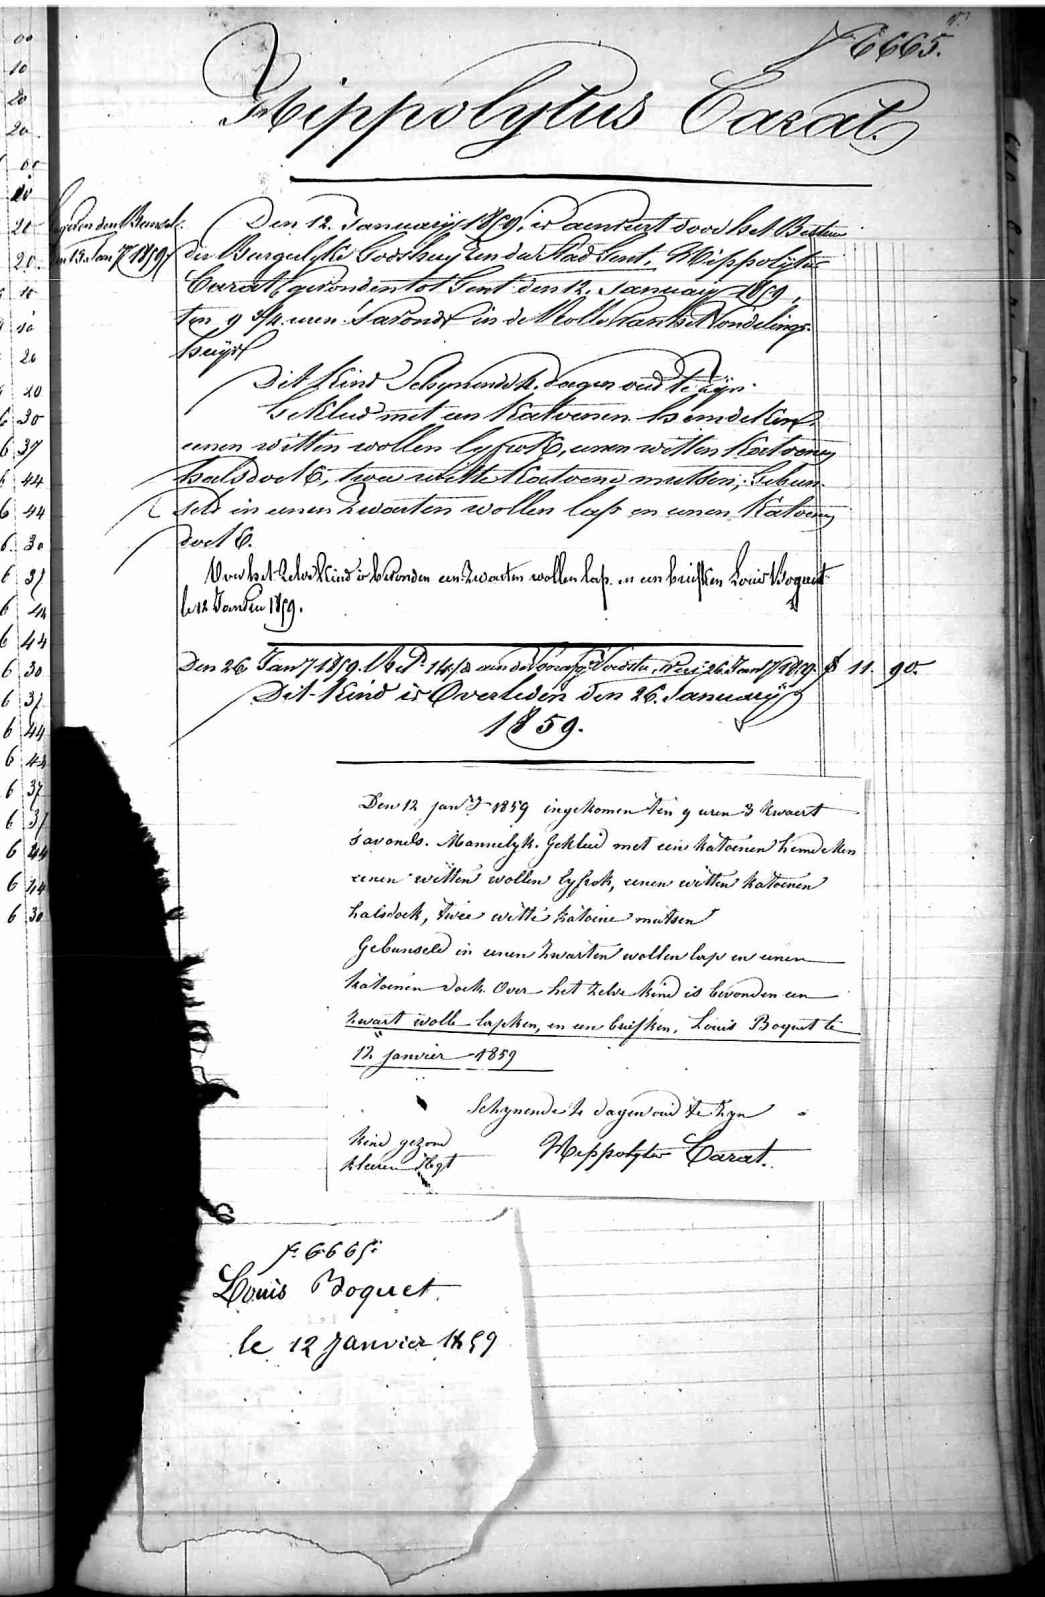 f. 6665.
Hippolytus Carat.
Den 12. Januarij 1859, is aenveert door het Bestuer
der Burgelyke Godshuyzen der Stad Gent, Hippolytus
Carat, gevonden tot Gent den 12. January 1859,
ten 9 3/4 uren 's avonds in de Rolle van het Vondelings-
huys
Dit Kind Schynende 2. dagen oud te zyn.
Gekleed met een Katoenen hemdeken,
eenen witten wollen lyfrok, eenen witten Katoenen
halsdoek, twee witte Katoene mutsen; Gebun-
seld in eenen Zwarten wollen lap en eenen Katoenen
doek.
Over het Zelve Kind is bevonden een Zwarten wollen lap en een briefken Louis Boquet
le 12 Janvier 1859.
Den 26 Jany 1859. 26 Jany 1859. f 11. 90.
Dit Kind is Overleden den 26. January
1859.
Den 12 janry 1859 ingekomen ten 9 uren 3 kwaert
s avonds. Mannelyk. Gekleed met een katoenen hemdeken
eenen witten wollen lyfrok, eenen witten katoenen
halsdoek, twee witte katoene mutsen
Gebunseld in eenen zwarten wollen lap en eenen
katoenen doek. Over het zelve kind is bevonden een
zwart wolle lapken, en een briefken, Louis Boquet le
12 janvier 1859
Schynende 2 dagen oud te zyn
kind gezond
kleeren slegt Hippolytus Carat.
f. 6665.
Louis Boquet
le 12 Janvier 1859
6 30
6 37
6 44
6 44
6 30
6 37
6 44
6 44
6 30
6 37
6 44
6 44
6 37
6 37
6 44
6 44
6 30